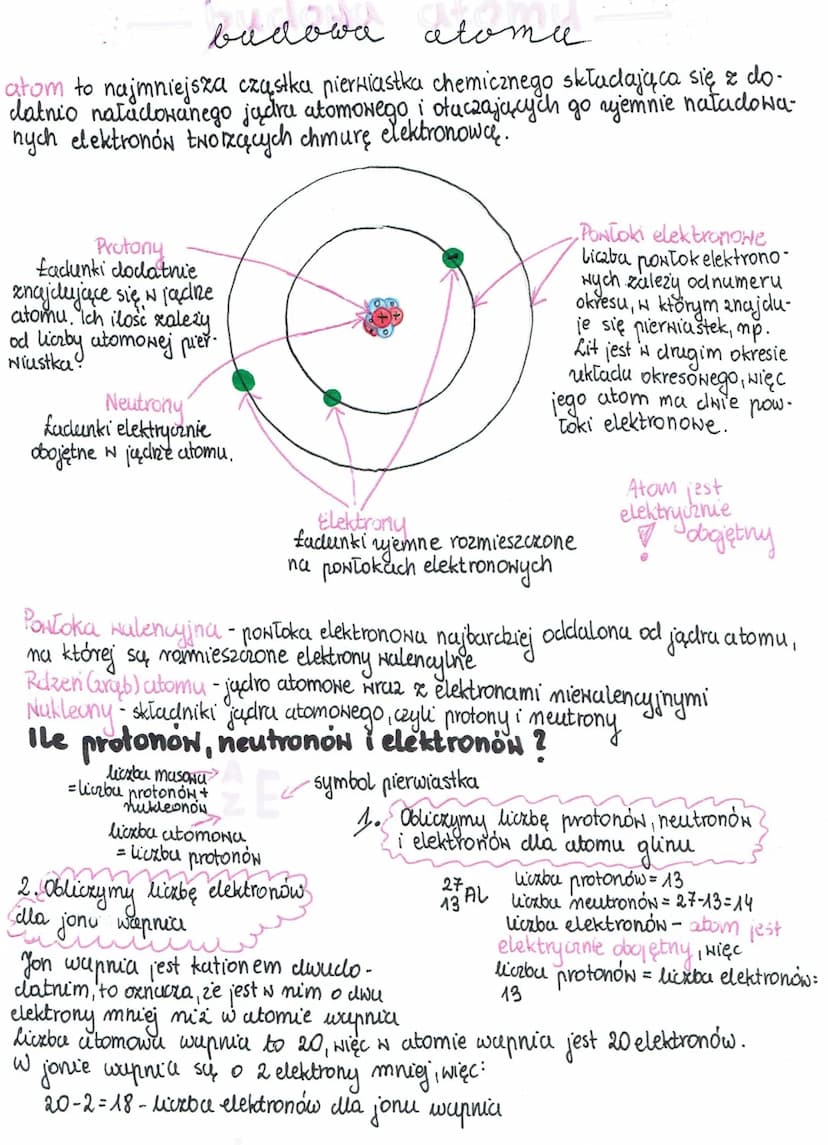 budowa atomu
atom to najmniejsza cząstka pierwiastka chemicznego składająca się z do-
datnio naładowanego jądra atomowego i otaczających go ujemnie naładowa-
nych elektronów tworzących chmurę elektronową.
Protony
Ładunki dodatnie
znajdujące się w jądrze
atomu. Ich ilość zależy
od liczby atomowej pier-
wiastka.
Neutrony
Ładunki elektrycznie
obojętne w jądrze atomu.
Powłoki elektronowe
liczba powłok elektrono-
wych zależy od numeru
okresu, w którym znajdu-
je się pierwiastek, np.
Lit jest w drugim okresie
układu okresowego, więc
jego atom ma dwie pow-
łoki elektronowe.
Elektrony
Ładunki ujemne rozmieszczone
na powłokach elektronowych
Atom jest
elektrycznie
obojętny
!
Powłoka walencyjna - powłoka elektronowa najbardziej oddalona od jądra atomu,
na której są rozmieszczone elektrony walencyjne
Rdzeń (zrąb) atomu - jądro atomowe wraz z elektronami niewalencyjnymi
Nukleony - składniki jądra atomowego, czyli protony i neutrony
Ile protonów, neutronów i elektronów?
liczba masowa
= liczba protonów +
nukleonów
liczba atomowa
= liczba protonów
A
Z E
symbol pierwiastka
1. Obliczymy liczbę protonów, neutronów
i elektronów dla atomu glinu
27
13 Al
liczba protonów = 13
liczba neutronów = 27-13=14
liczba elektronów - atom jest
elektrycznie obojętny, więc
liczba protonów = liczba elektronów=
13
2. Obliczymy liczbę elektronów
dla jonu wapnia
Jon wapnia jest kationem dwudo-
datnim, to oznacza, że jest w nim o dwa
elektrony mniej niż w atomie wapnia
Liczba atomowa wapnia to 20, więc w atomie wapnia jest 20 elektronów.
W jonie wapnia są o 2 elektrony mniej, więc:
20-2=18 - liczba elektronów dla jonu wapnia